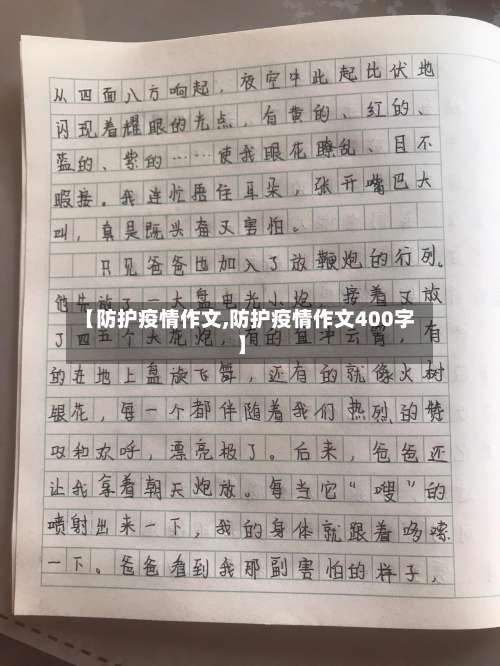 从四面八方响起，夜空中此起比伏地
闪现着耀眼的光点，有黄的、红的、
蓝的、紫的……使我眼花瞭乱、目不
暇接。我连忙捂住耳朵，张开嘴巴大
叫，真是既兴奋又害怕。
只见爸爸也加入了放鞭炮的行列。
他先放了一大盘电光小炮，接着又放
【防护疫情作文,防护疫情作文400字
】
了四五个天花炮，有的直冲云霄，有
的在地上盘旋飞舞，还有的就像火树
银花，每一个都伴随着我们热烈的赞
叹和欢呼，漂亮极了。后来，爸爸还
让我拿着朝天炮放。每当它“嗖”的
喷射出来一下，我的身体就跟着哆嗦
一下。爸爸看到我那副害怕的样子，